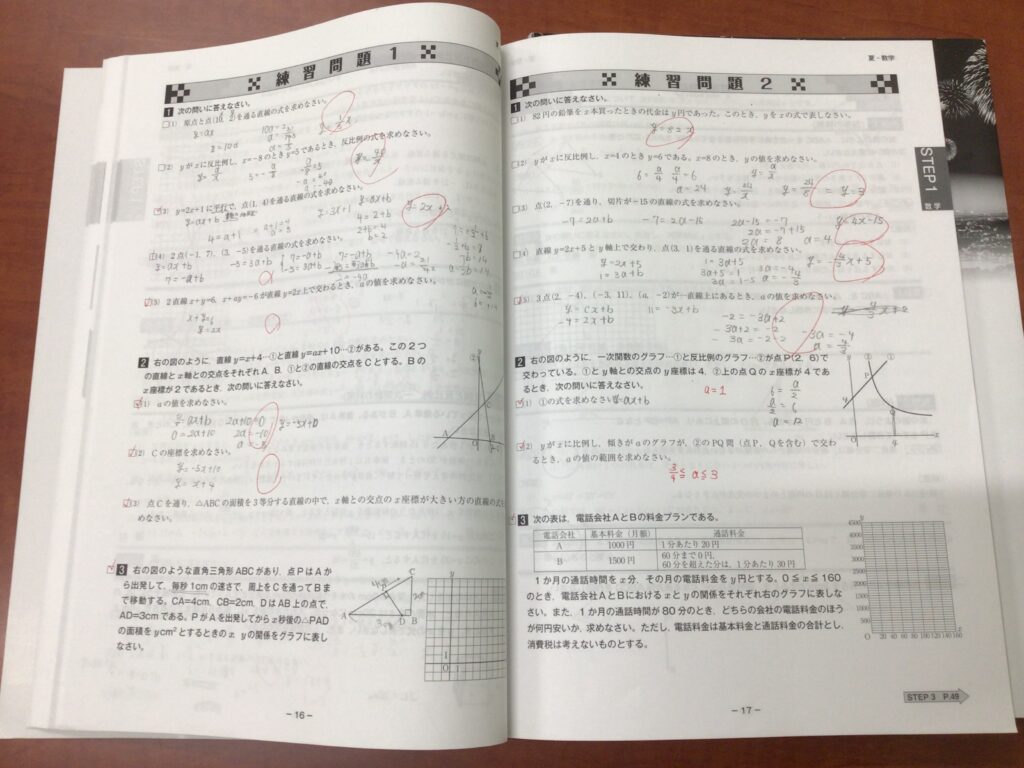 練習問題1
1 次の問いに答えなさい。
(1) 原点と点(10, 2)を通る直線の式を求めなさい。
y=ax
y=10a
(2) yがxに反比例し、x=-8のときy=5であるとき、反比例の式を求めなさい。
(3) y=2x+1に平行で、点(1, 4)を通る直線の式を求めなさい。
y=ax+b
4=a+b
y=3x+1
4=2+b
b=2
y=2x+2
(4) 2点(-1, 7), (3, -5)を通る直線の式を求めなさい。
y=ax+b
7=-a+b
-5=3a+b
(5) 2直線x+y=6, x+ay=-6が直線y=2x上で交わるとき、aの値を求めなさい。
x+y=6
y=2x
2 右の図のように、直線y=x+4…①と直線y=ax+10…②がある。この2つ
の直線とx軸との交点をそれぞれA, B, ①と②の直線の交点をCとする。Bの
x座標が2であるとき、次の問いに答えなさい。
(1) aの値を求めなさい。
y=ax+b
0=2a+10
2a+10=0
2a=-10
a=-5
y=-5x+10
(2) Cの座標を求めなさい。
y=-5x+10
y=x+4
(3) 点Cを通り、△ABCの面積を3等分する直線の中で、x軸との交点のx座標が大きい方の直線の式を
めなさい。
3 右の図のような直角三角形ABCがあり、点PはAか
ら出発して、毎秒1cmの速さで、周上をCを通ってBま
で移動する。CA=4cm, CB=2cm, DはAB上の点で、
AD=3cmである。PがAを出発してからx秒後の△PAD
の面積をycm²とするときのx, yの関係をグラフに表し
なさい。
A
B
C
D
y
1
O
1
-16-
夏-数学
練習問題2
1 次の問いに答えなさい。
(1) 82円の鉛筆をx本買ったときの代金はy円であった。このとき、yをxの式で表しなさい。
y=82x
(2) yがxに反比例し、x=4のときy=6である。x=8のとき、yの値を求めなさい。
6=a/4
a/4=6
a=24
y=a/x
y=24/x
y=24/8
y=3
(3) 点(2, -7)を通り、切片が-15の直線の式を求めなさい。
-7=2a+b
-7=2a-15
2a-15=-7
2a=-7+15
2a=8
a=4
y=4x-15
(4) 直線y=2x+5とy軸上で交わり、点(3, 1)を通る直線の式を求めなさい。
y=2x+5
1=3a+b
1=3a+5
3a+5=1
3a=1-5
3a=-4
y=-4/3x+5
(5) 3点(2, -4), (-3, 11), (a, -2)が一直線上にあるとき、aの値を求めなさい。
-4=2x+b
11=-3x+b
-2=-3a+2
-3a+2=-2
-3a=-2-2
-3a=-4
2 右の図のように、一次関数のグラフ…①と反比例のグラフ…②が点P(2, 6)で
交わっている。①とy軸との交点のy座標は4, ②上の点Qのx座標が4であ
るとき、次の問いに答えなさい。
a=1
(1) ①の式を求めなさい。
y=ax+b
6=a/2
a/2=6
a=12
(2) yがxに比例し、傾きがaのグラフが、②のPQ間(点P, Qを含む)で交わ
るとき、aの値の範囲を求めなさい。
3/4≦a≦3
② ①
P
Q
O
4
x
3 次の表は、電話会社AとBの料金プランである。
電話会社 基本料金(月額) 通話料金
A 1000円 1分あたり20円
B 1500円 60分まで0円,
60分を超えた分は、1分あたり30円
1か月の通話時間をx分, その月の電話料金をy円とする。0≦x≦160
のとき、電話会社AとBにおけるxとyの関係をそれぞれ右のグラフに表し
なさい。また、1か月の通話時間が80分のとき、どちらの会社の電話料金のほう
が何円安いか、求めなさい。ただし、電話料金は基本料金と通話料金の合計とし、
消費税は考えないものとする。
y
4500
4000
3500
3000
2500
2000
1500
1000
500
O 20 40 60 80 100 120 140 160
STEP1
数学
STEP 3 P.49
-17-